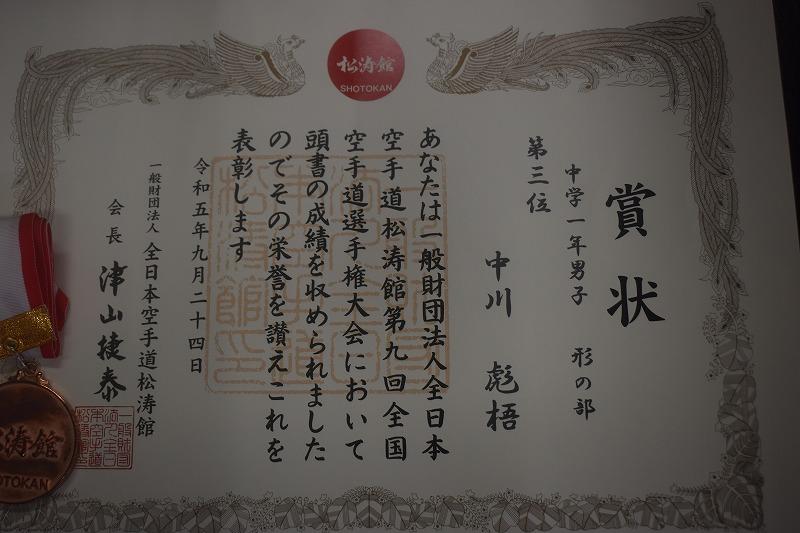 松涛館
SHOTOKAN
賞状
中学一年男子 形の部
第三位
中川 彪梧
あなたは一般財団法人全日本
空手道松涛館第九回全国
空手道選手権大会において
頭書の成績を収められました
のでその栄誉を讃えこれを
表彰します
令和五年九月二十四日
一般財団法人 全日本空手道松涛館
会長 津山捷泰
涛館
OTOKAN